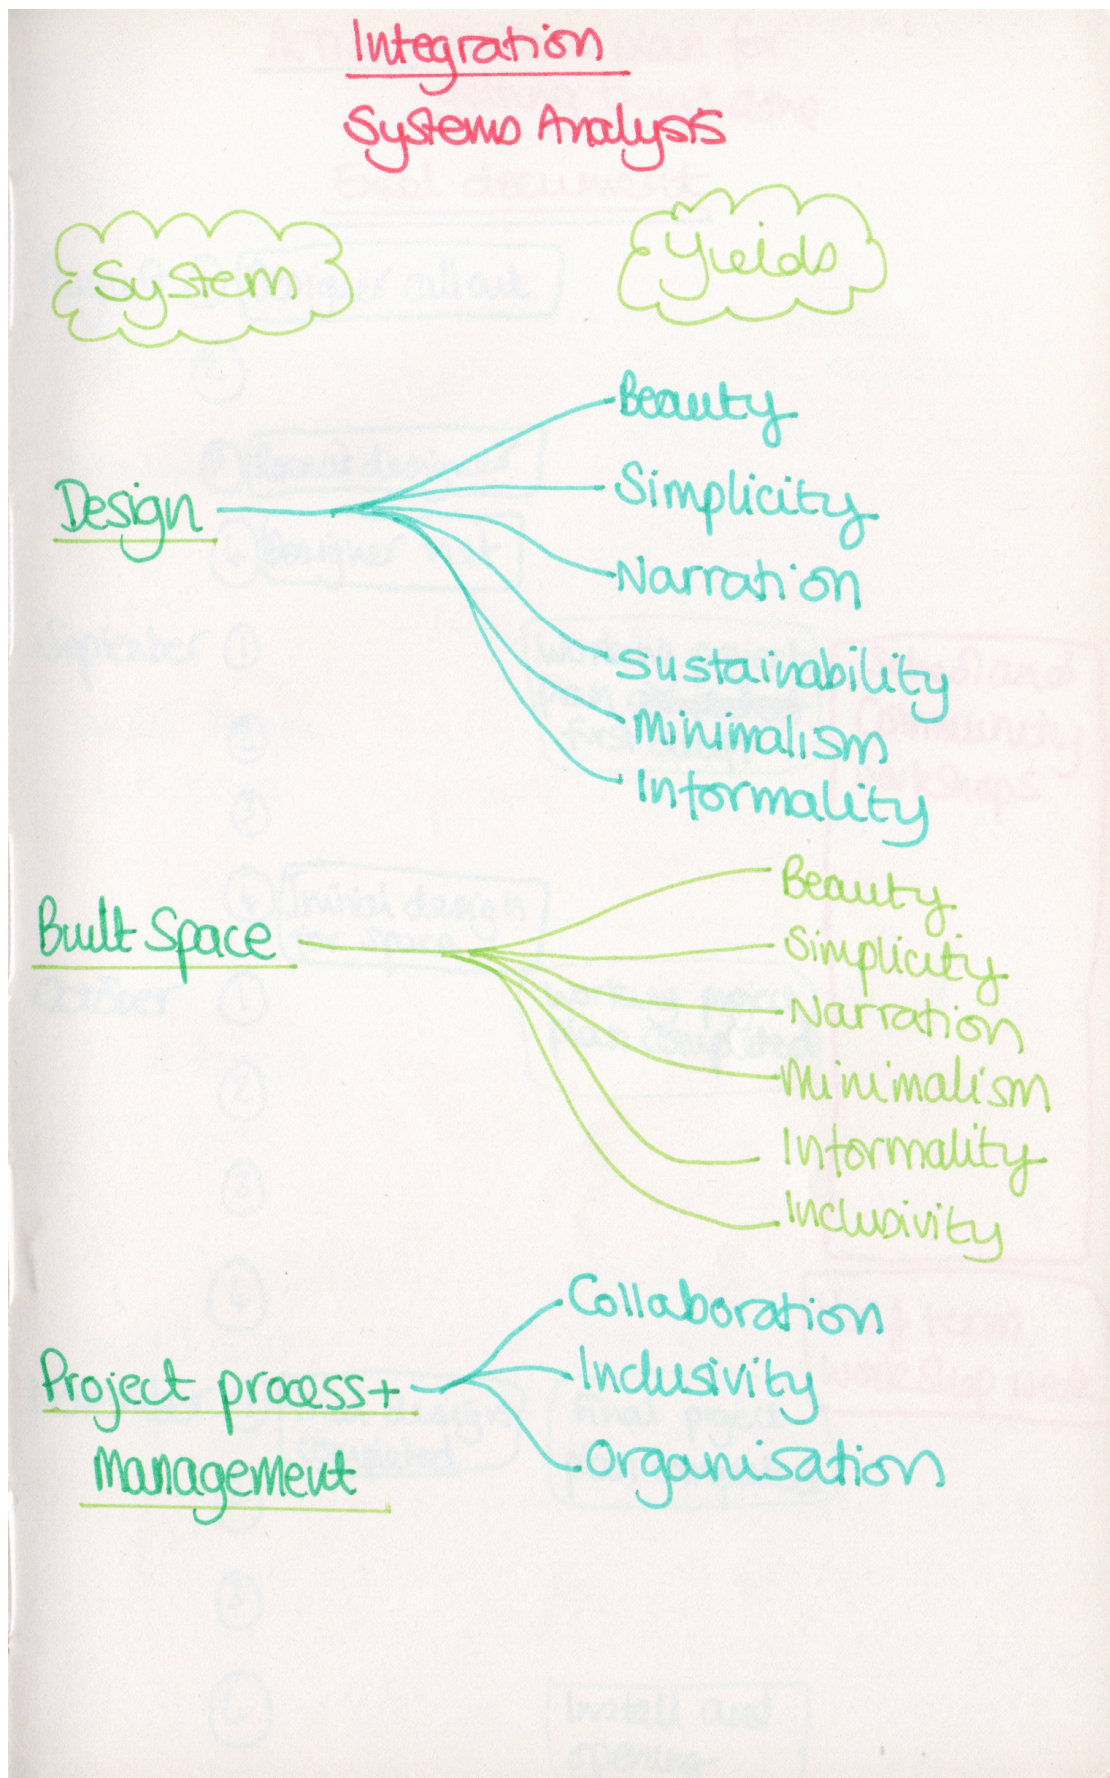 Integration
Systems Analysis
System
Yields
Design
Beauty
Simplicity
Narration
Sustainability
Minimalism
Informality
Built Space
Beauty
Simplicity
Narration
Minimalism
Informality
Inclusivity
Project process +
Management
Collaboration
Inclusivity
Organisation